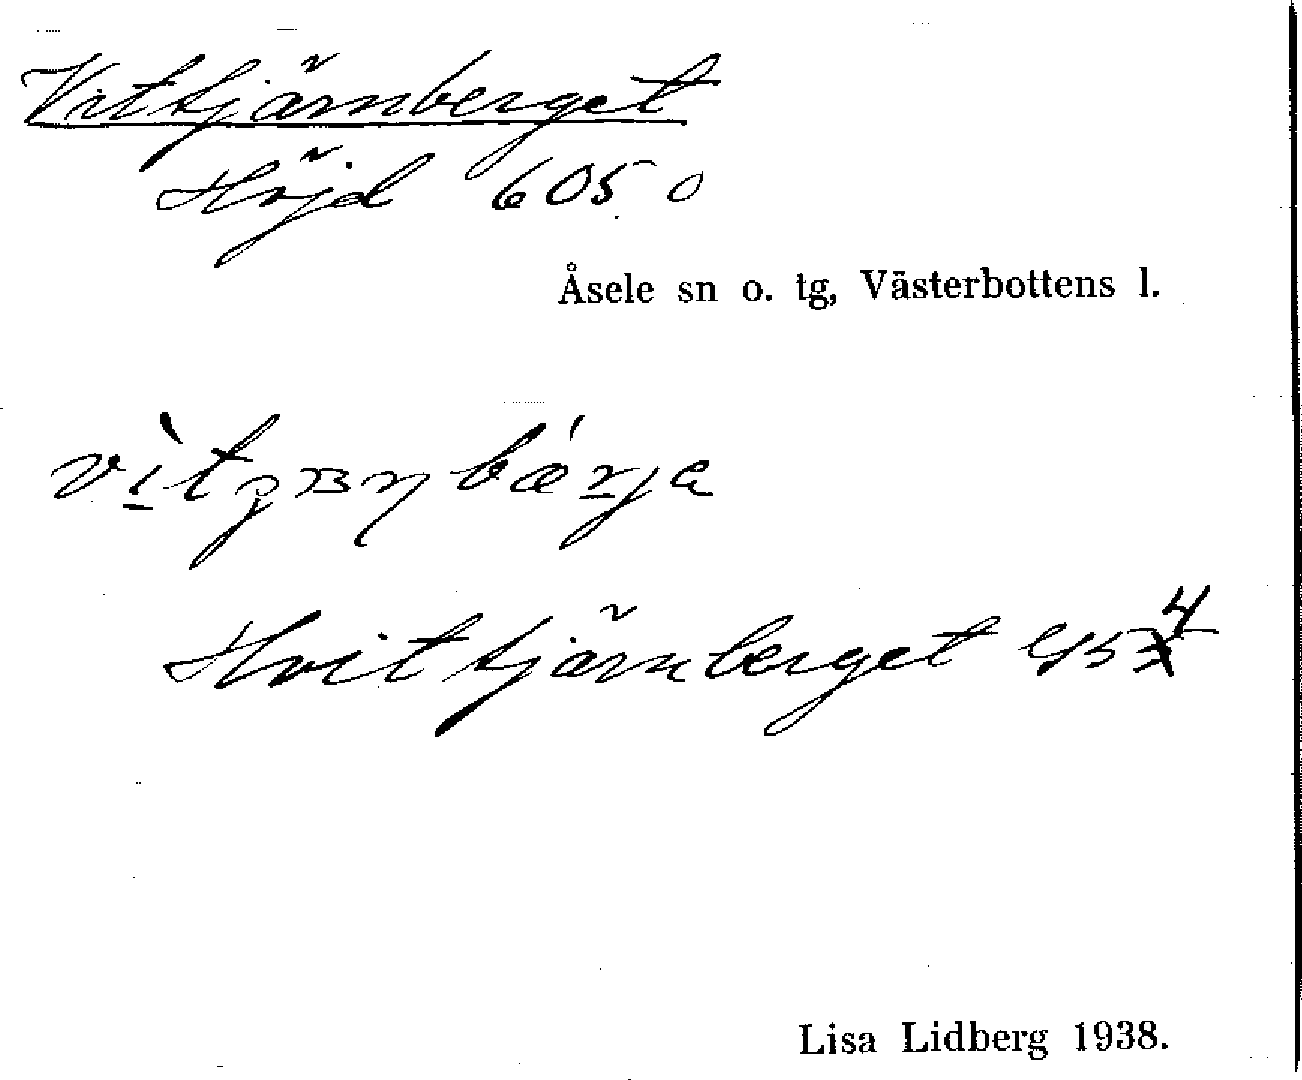 Vittjärnberget
Höjd 605 0
Åsele sn o. tg, Västerbottens l.
Hvittjärnberget
Lisa Lidberg 1938.